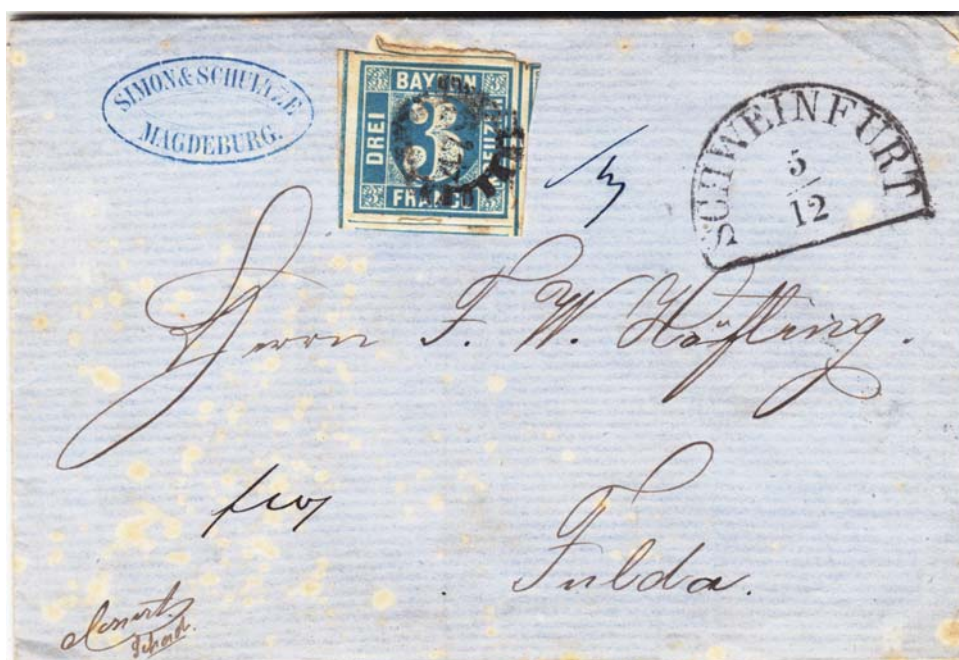 SIMON & SCHULTZE
MAGDEBURG.
BAYERN
DREI
3
KREUZER
FRANCO
SCHWEINFURT
5/12
Herrn F. W. Höfling.
Fulda.